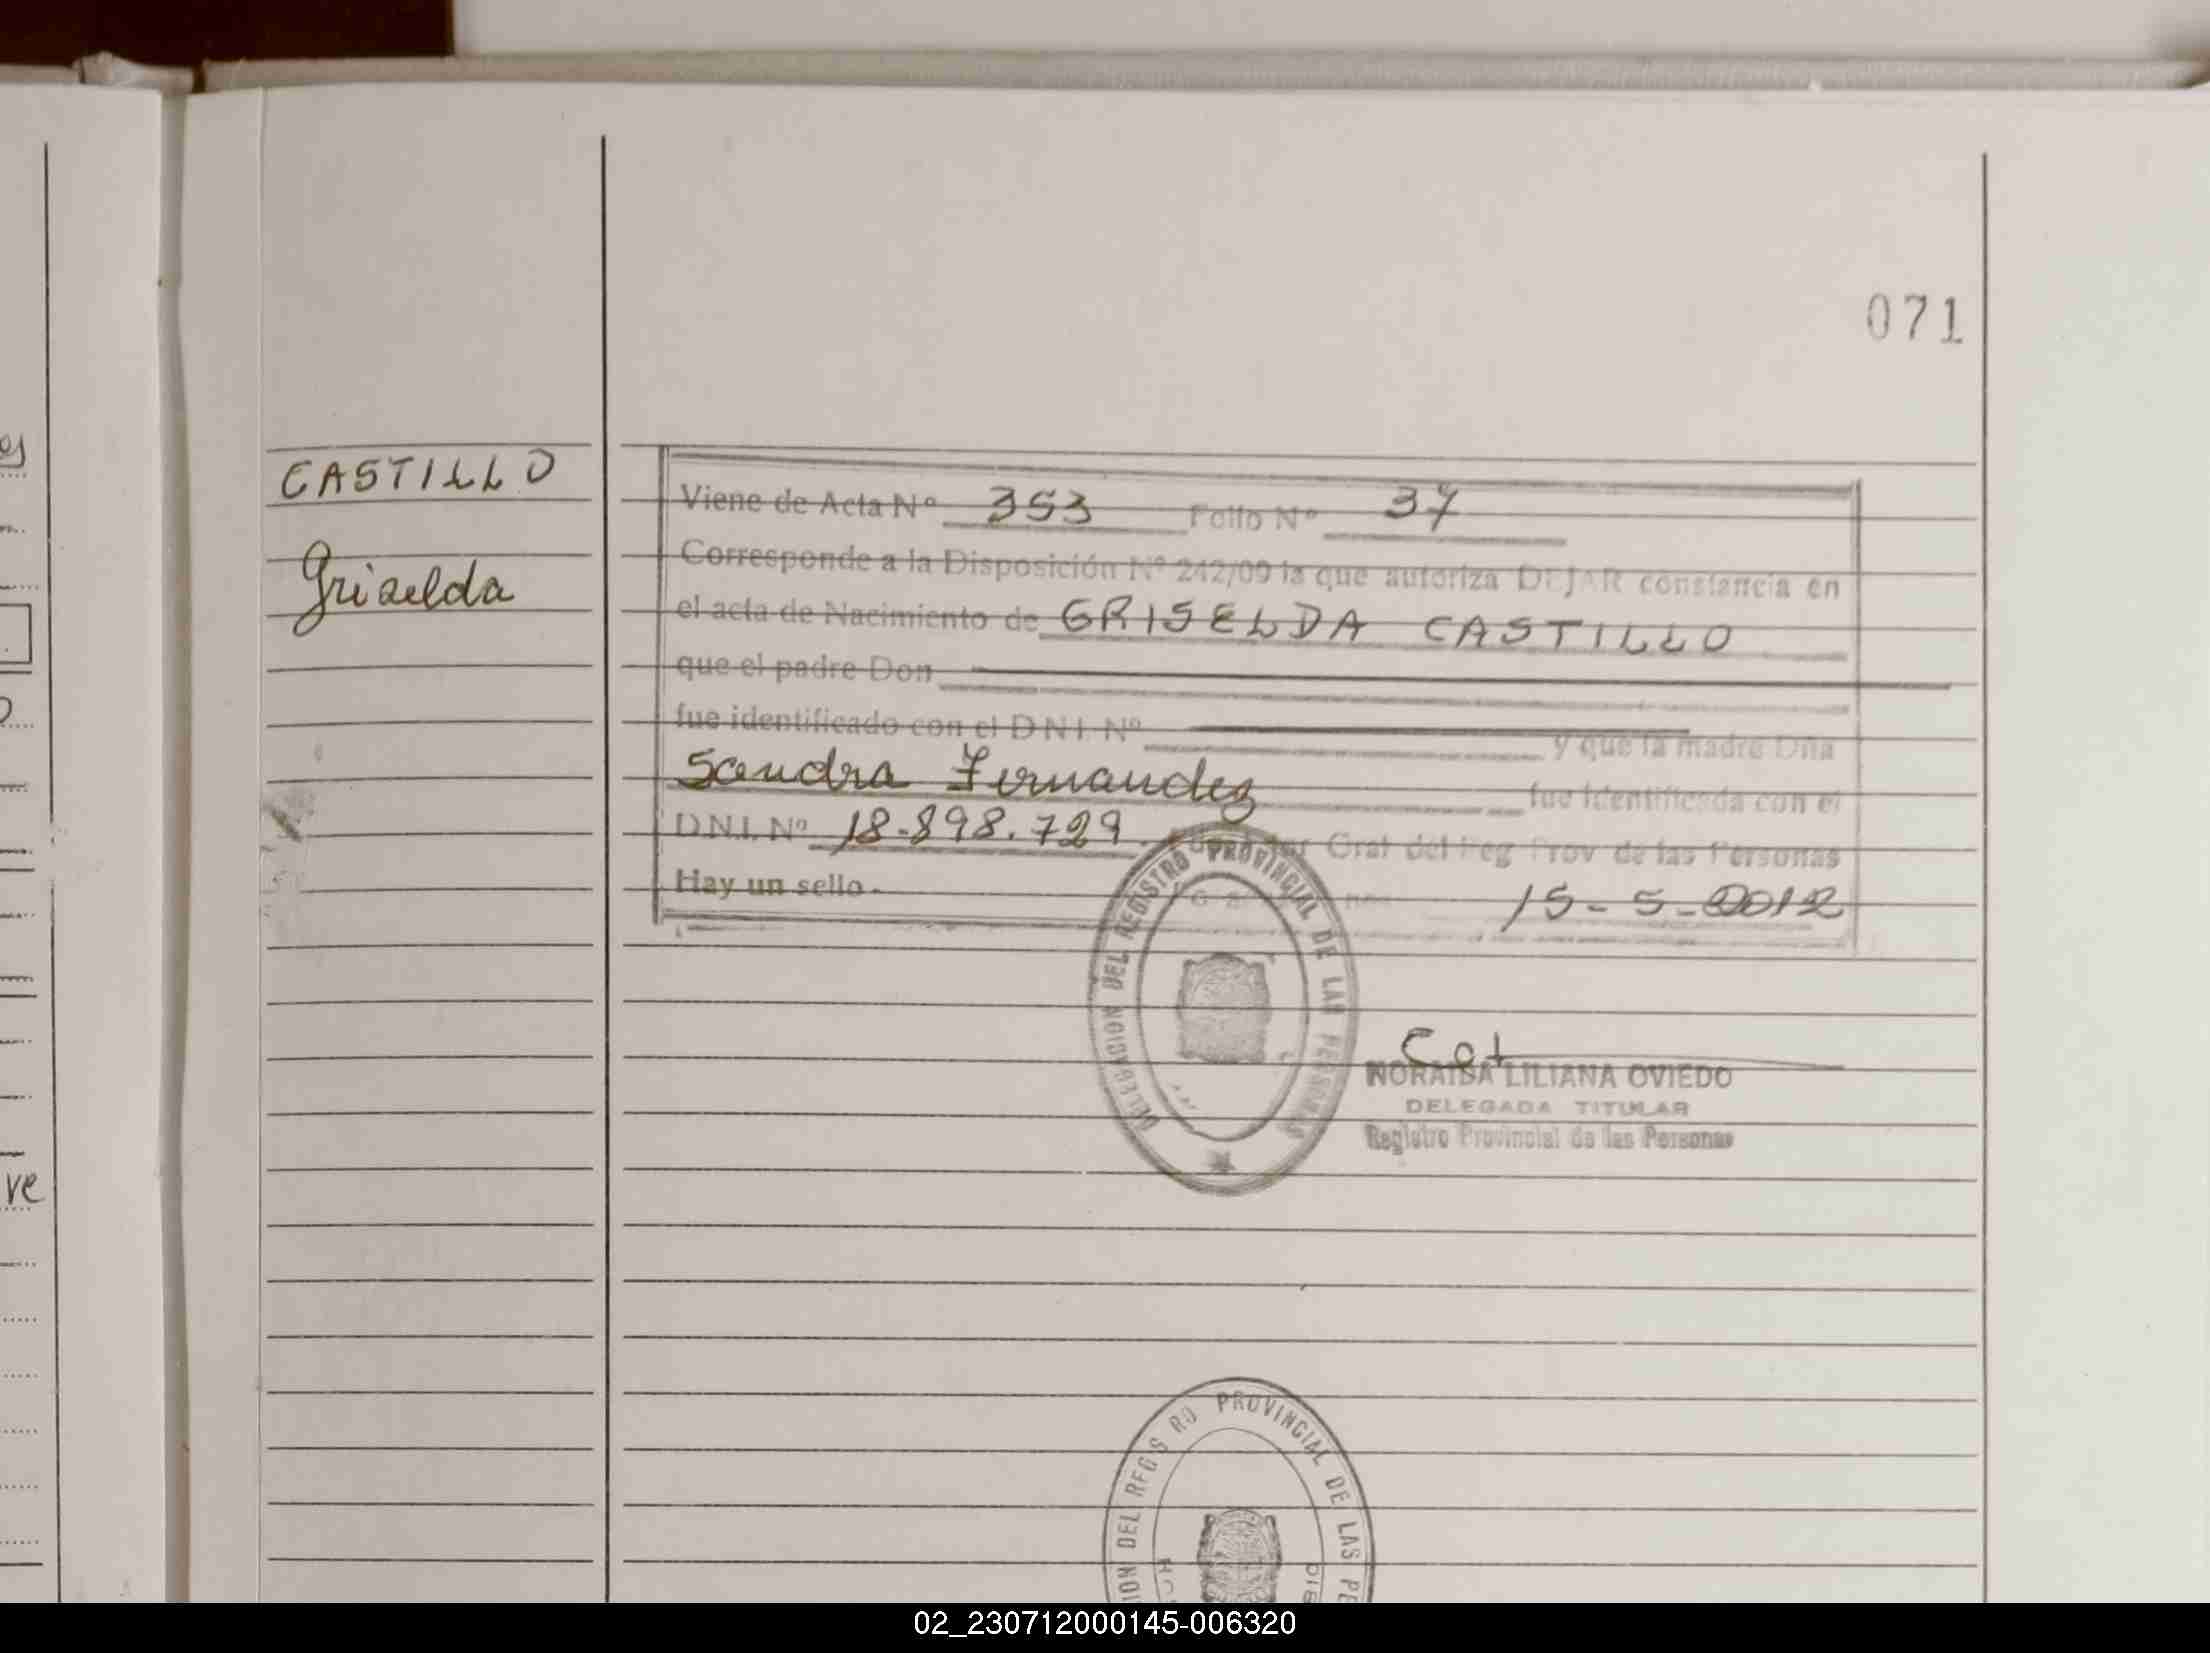 071
CASTILLO
Griselda
Viene de Acta Nº 353 Folio Nº 37
Corresponde a la Disposición Nº 242/09 la que autoriza DEJAR constancia en
el acta de Nacimiento de GRISELDA CASTILLO
que el padre Don
fue identificado con el D.N.I. Nº y que la madre Dña
Sandra Fernandez fue identificada con el
D.N.I. Nº 18.898.729. Gral del Reg Prov de las Personas
Hay un sello. 15-5-2012
DELEGACION DEL REGISTRO PROVINCIAL DE LAS PERSONAS
NORAIBA LILIANA OVIEDO
DELEGADA TITULAR
Registro Provincial de las Personas
ION DEL REGIS RO PROVINCIAL DE LAS PE
ve
02_230712000145-006320